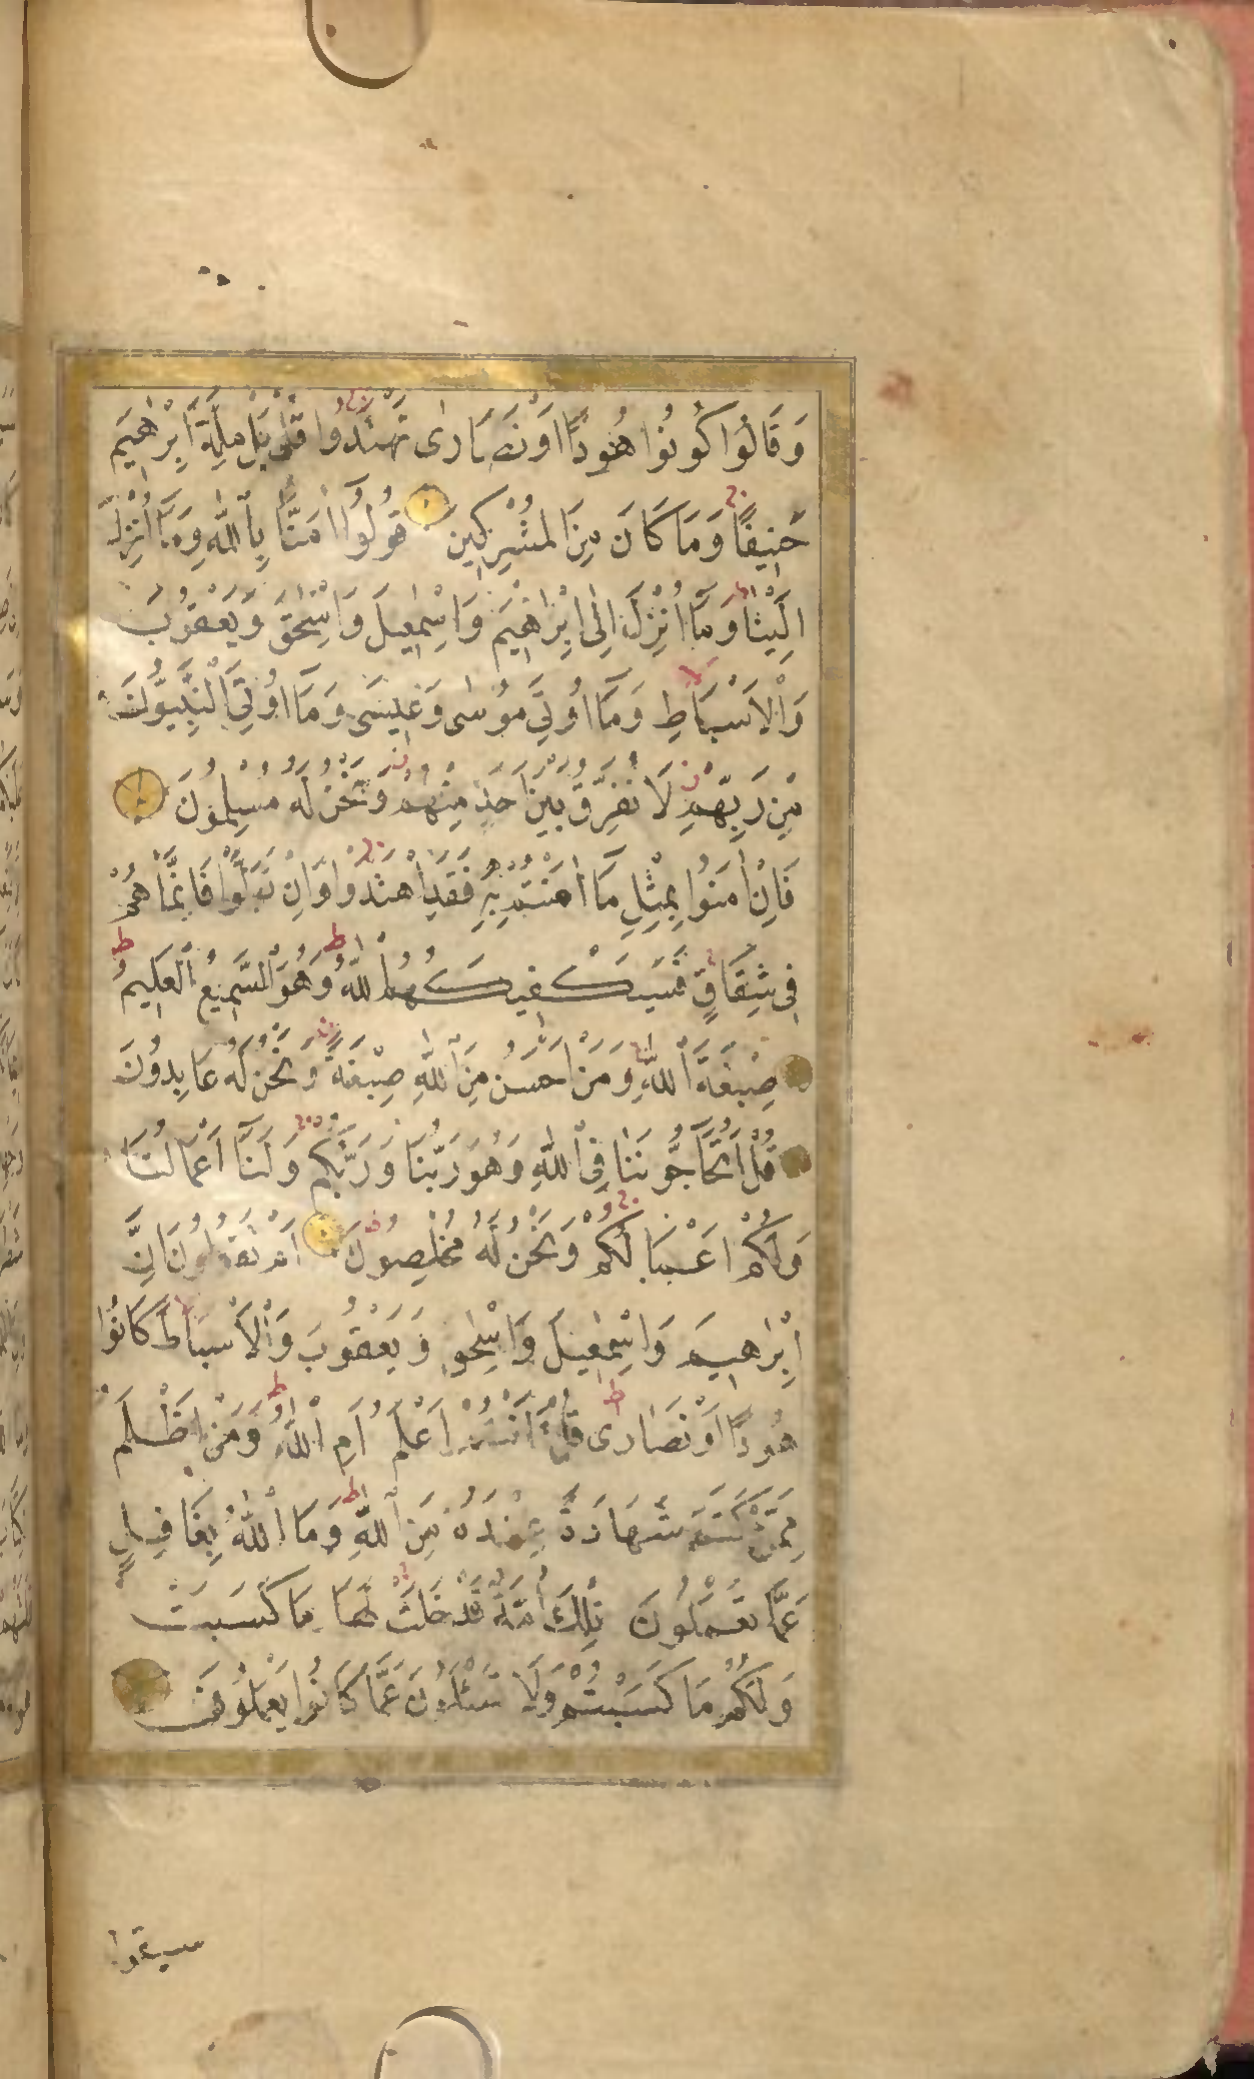 وَقَالُوا كُونُوا هُودًا اَوْ نَصَارٰى تَهْتَدُوا قُلْ بَلْ مِلَّةَ اِبْرٰهٖيمَ
حَنِيفًا وَمَا كَانَ مِنَ الْمُشْرِكِينَ قُولُوا اٰمَنَّا بِاللّٰهِ وَمَا اُنْزِلَ
اِلَيْنَا وَمَا اُنْزِلَ اِلٰى اِبْرٰهٖيمَ وَاِسْمٰعِيلَ وَاِسْحٰقَ وَيَعْقُوبَ
وَالْاَسْبَاطِ وَمَا اُوتِيَ مُوسٰى وَعِيسٰى وَمَا اُوتِيَ النَّبِيُّونَ
مِنْ رَبِّهِمْ لَا نُفَرِّقُ بَيْنَ اَحَدٍ مِنْهُمْ وَنَحْنُ لَهُ مُسْلِمُونَ
فَاِنْ اٰمَنُوا بِمِثْلِ مَا اٰمَنْتُمْ بِهٖ فَقَدِ اهْتَدَوْا وَاِنْ تَوَلَّوْا فَاِنَّمَا هُمْ
فِى شِقَاقٍ فَسَيَكْفِيكَهُمُ اللّٰهُ وَهُوَ السَّمِيعُ الْعَلِيمُ
صِبْغَةَ اللّٰهِ وَمَنْ اَحْسَنُ مِنَ اللّٰهِ صِبْغَةً وَنَحْنُ لَهُ عَابِدُونَ
قُلْ اَتُحَاجُّونَنَا فِى اللّٰهِ وَهُوَ رَبُّنَا وَرَبُّكُمْ وَلَنَا اَعْمَالُنَا
وَلَكُمْ اَعْمَالُكُمْ وَنَحْنُ لَهُ مُخْلِصُونَ اَمْ تَقُولُونَ اِنَّ
اِبْرٰهِيمَ وَاِسْمٰعِيلَ وَاِسْحٰقَ وَيَعْقُوبَ وَالْاَسْبَاطَ كَانُوا
هُودًا اَوْ نَصَارٰى قُلْ ءَاَنْتُمْ اَعْلَمُ اَمِ اللّٰهُ وَمَنْ اَظْلَمُ
مِمَّنْ كَتَمَ شَهَادَةً عِنْدَهُ مِنَ اللّٰهِ وَمَا اللّٰهُ بِغَافِلٍ
عَمَّا تَعْمَلُونَ تِلْكَ اُمَّةٌ قَدْ خَلَتْ لَهَا مَا كَسَبَتْ
وَلَكُمْ مَا كَسَبْتُمْ وَلَا تُسْئَلُونَ عَمَّا كَانُوا يَعْمَلُونَ